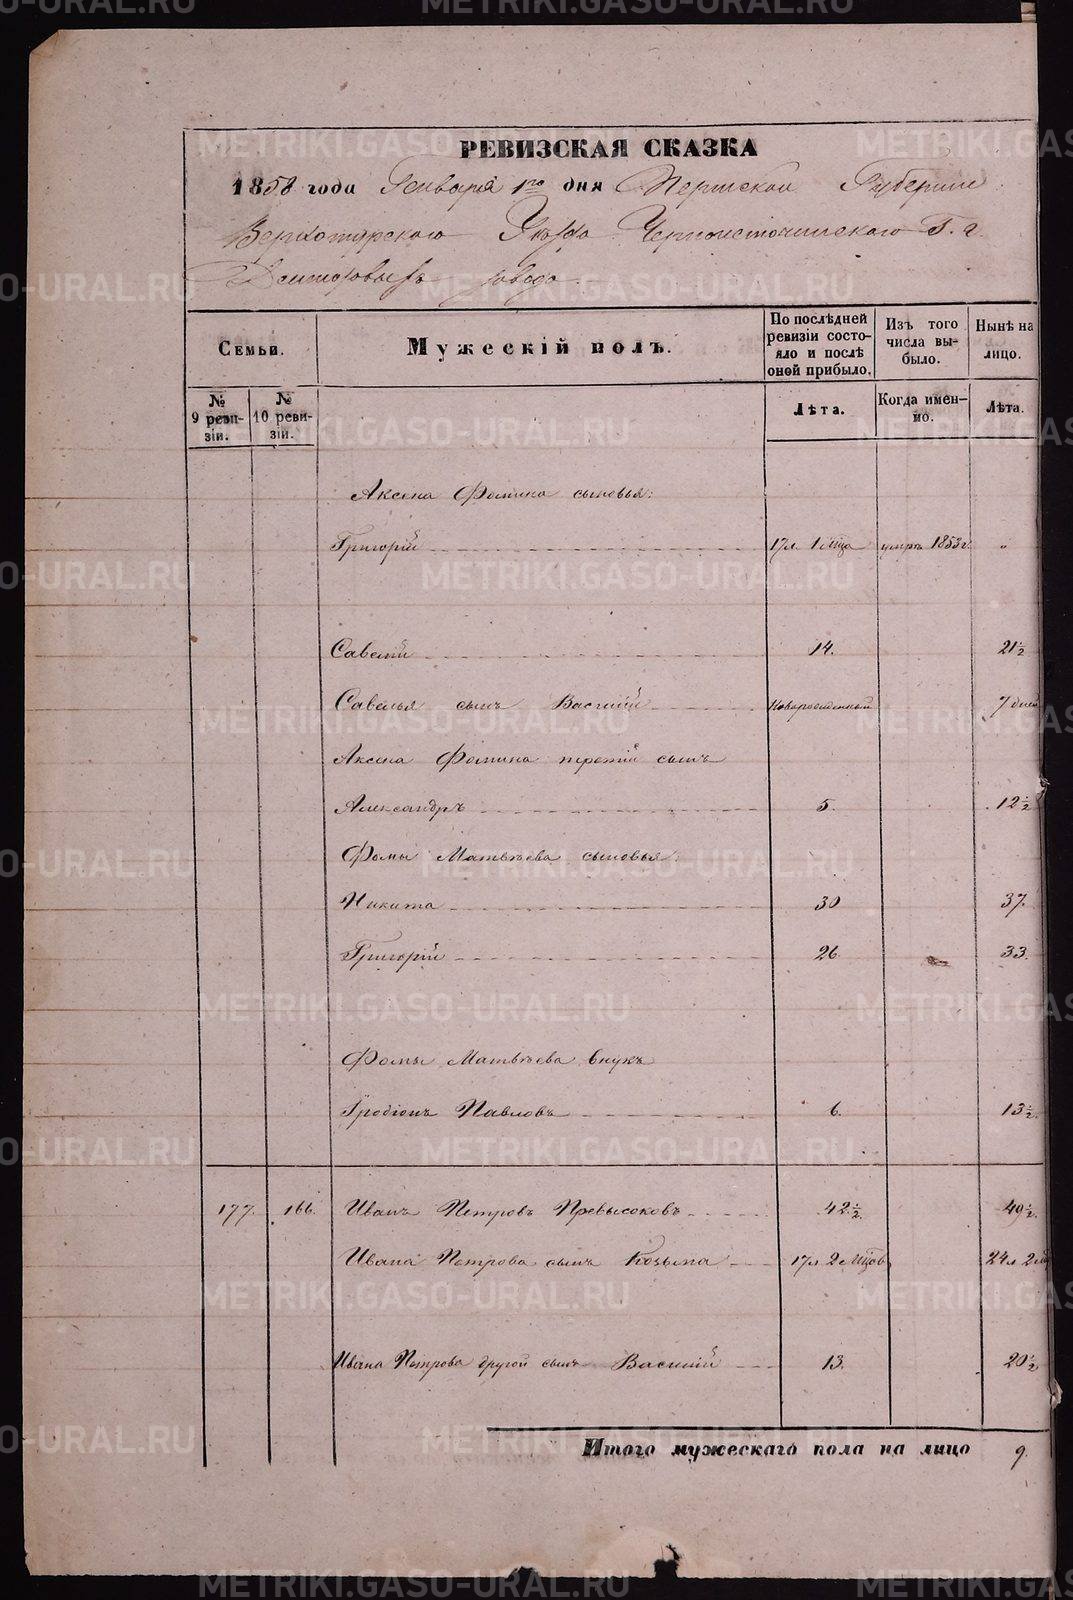 РЕВИЗСКАЯ СКАЗКА
1858 года Января 1го дня Пермской Губернии
Верхотурского Уѣзда Черноисточинского Г. г.
Демидовыхъ завода
Семьи.
Мужескій полъ.
По послѣдней ревизіи состояло и послѣ оной прибыло.
Изъ того числа выбыло.
Нынѣ на лицо.
№ 9 ревизіи.
№ 10 ревизіи.
Лѣта.
Когда именно.
Лѣта.
Аксена Фомина сыновья:
Григорій 17л. 1 мца умеръ 1853г. "
Савелій 14. 21½
Савелья сынъ Василій Новорожденный 7 дней
Аксена Фомина третій сынъ
Александръ 5. 12½
Фомы Матвѣева сыновья:
Никита 30 37.
Григорій 26. 33.
Фомы Матвѣева внукъ
Иродіонъ Павловъ 6. 13½.
177. 166. Иванъ Петровъ Превысоковъ 42½. 49½.
Ивана Петрова сынъ Козьма 17л 2 мцов 24л 2
Ивана Петрова другой сынъ Василій 13. 20½
Итого мужескаго пола на лицо 9.
METRIKI.GASO-URAL.RU